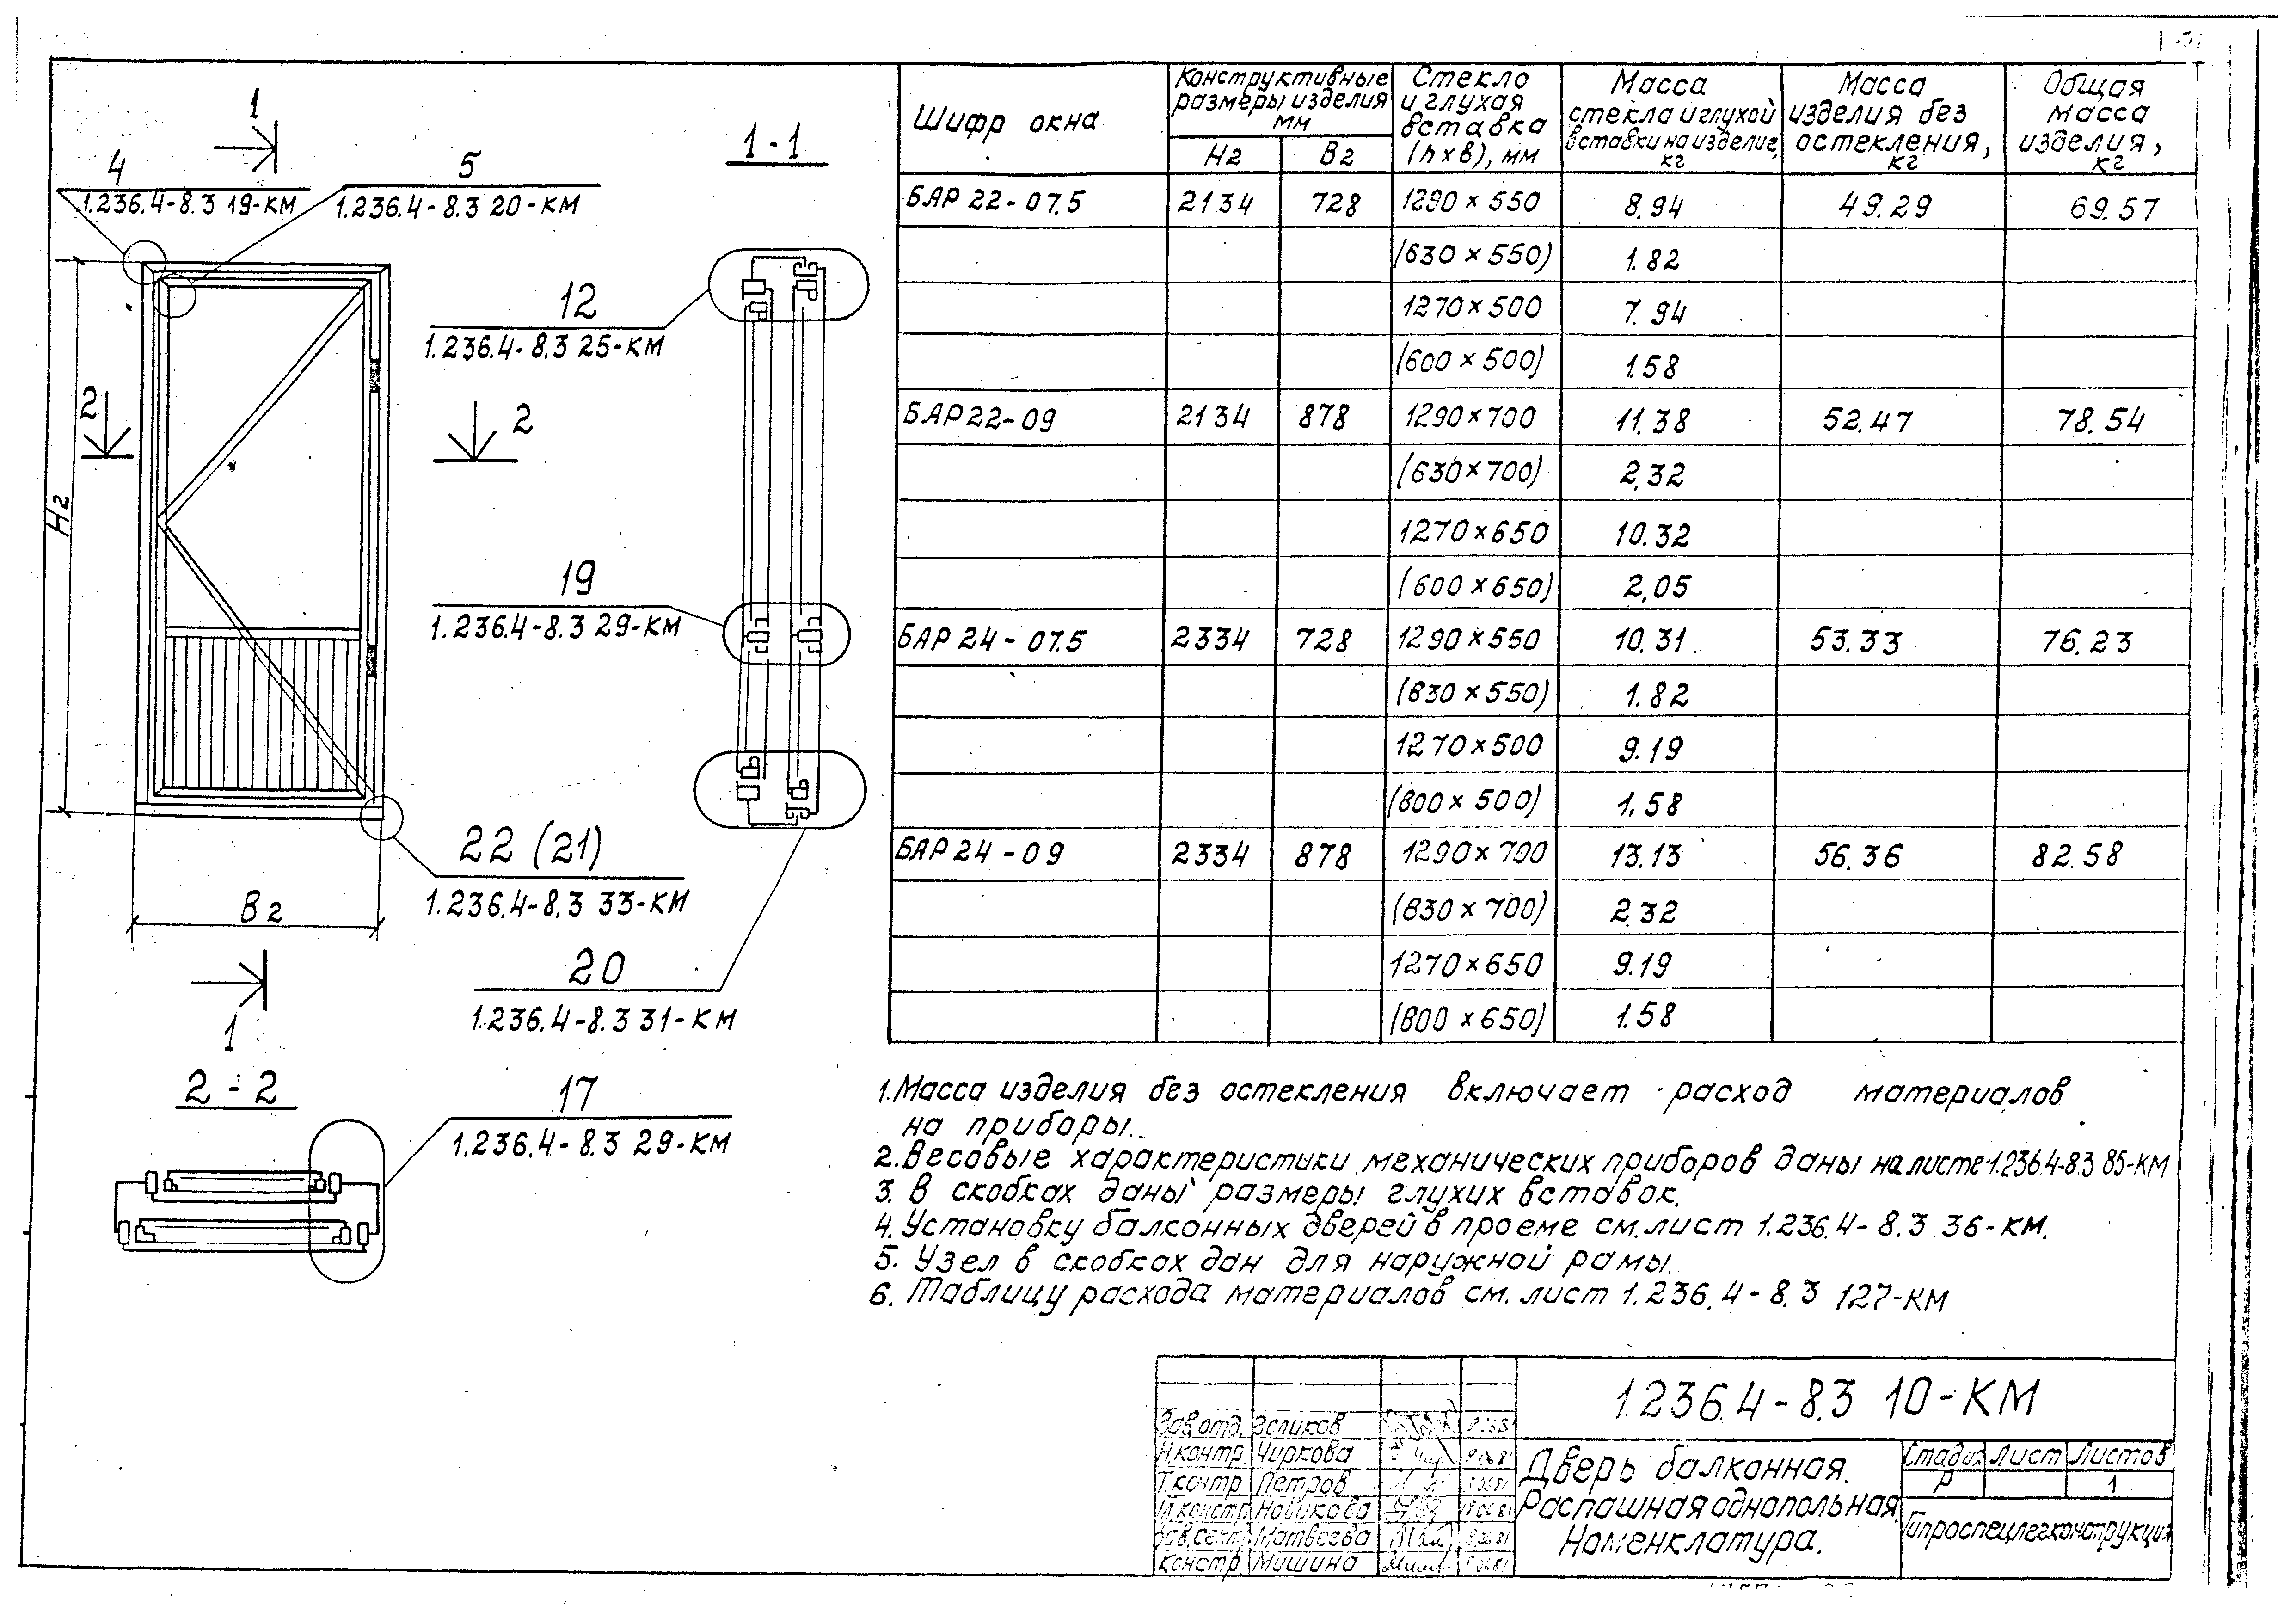 1
4
1.236.4-8.3 19-КМ
5
1.236.4-8.3 20-КМ
1-1
12
1.236.4-8.3 25-КМ
2
2
H2
19
1.236.4-8.3 29-КМ
22 (21)
1.236.4-8.3 33-КМ
B2
20
1.236.4-8.3 31-КМ
1
2-2
17
1.236.4-8.3 29-КМ
Шифр окна
Конструктивные размеры изделия мм
H2 B2
Стекло и глухая вставка (h×в), мм
Масса стекла и глухой вставки на изделие, кг
Масса изделия без остекления, кг
Общая масса изделия, кг
БАР 22-07.5 2134 728 1290×550 8.94 49.29 69.57
(630×550) 1.82
1270×500 7.94
(600×500) 1.58
БАР 22-09 2134 878 1290×700 11.38 52.47 78.54
(630×700) 2,32
1270×650 10.32
(600×650) 2,05
БАР 24-07.5 2334 728 1290×550 10.31 53.33 76.23
(830×550) 1.82
1270×500 9.19
(800×500) 1.58
БАР 24-09 2334 878 1290×700 13.13 56.36 82.58
(830×700) 2.32
1270×650 9.19
(800×650) 1.58
1. Масса изделия без остекления включает расход материалов
на приборы.
2. Весовые характеристики механических приборов даны на листе 1.236.4-8.3 85-КМ
3. В скобках даны размеры глухих вставок.
4. Установку балконных дверей в проеме см. лист 1.236.4-8.3 36-КМ.
5. Узел в скобках дан для наружной рамы.
6. Таблицу расхода материалов см. лист 1.236.4-8.3 127-КМ
1.236.4-8.3 10-КМ
Зав.отд.
Н.контр. Чиркова
Т.контр. Петров
Новикова
Матвеева
Констр. Мишина
Дверь балконная.
Распашная однопольная.
Номенклатура.
Стадия Лист Листов
Р 1
Гипроспецлегконструкция